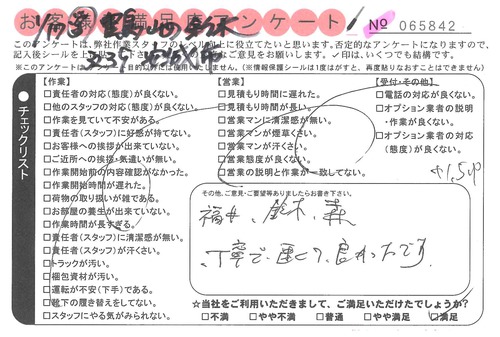 お客様満足度アンケート!
№ 065842
このアンケートは、弊社作業スタッフのレベル向上に役立てたいと思います。否定的なアンケートになりますので、
記入後シールを上に貼って下さい。ご意見をお願いします。✓印は、いくつでも結構です。
※このアンケートは、アンケート目的以外には使用いたしません。(※情報保護シールは1度はがすと、再度貼りなおすことはできません)
チェックリスト
【作業】
□責任者の対応(態度)が良くない。
□他のスタッフの対応(態度)が良くない。
□作業を見ていて不安がある。
□責任者(スタッフ)に好感が持てない。
□お客様への挨拶が出来ていない。
□ご近所への挨拶・気遣いが無い。
□作業開始前の内容確認がなかった。
□作業開始時間が遅れた。
□荷物の取り扱いが雑である。
□お部屋の養生が出来ていない。
□作業時間が長すぎる。
□責任者(スタッフ)に清潔感が無い。
□責任者(スタッフ)が汗くさい。
□トラックが汚い。
□梱包資材が汚い。
□運転が不安(下手)である。
□靴下の履き替えをしてない。
□スタッフにやる気がみられない。
【営業】
□見積もり時間に遅れた。
□見積もり時間が長い。
□営業マンに清潔感が無い。
□営業マンが煙草くさい。
□営業マンが汗くさい。
□営業態度が良くない。
□営業の説明と作業が一致してない。
【受付・その他】
□電話の対応が良くない。
□オプション業者の説明
・作業が良くない。
□オプション業者の対応
(態度)が良くない。
その他、ご意見・ご要望等ありましたらお書き下さい。
福井、鈴木、森
丁寧で、速くて、良かったです
☆当社をご利用いただきまして、ご満足いただけたでしょうか?
□不満 □やや不満 □普通 □やや満足 □満足